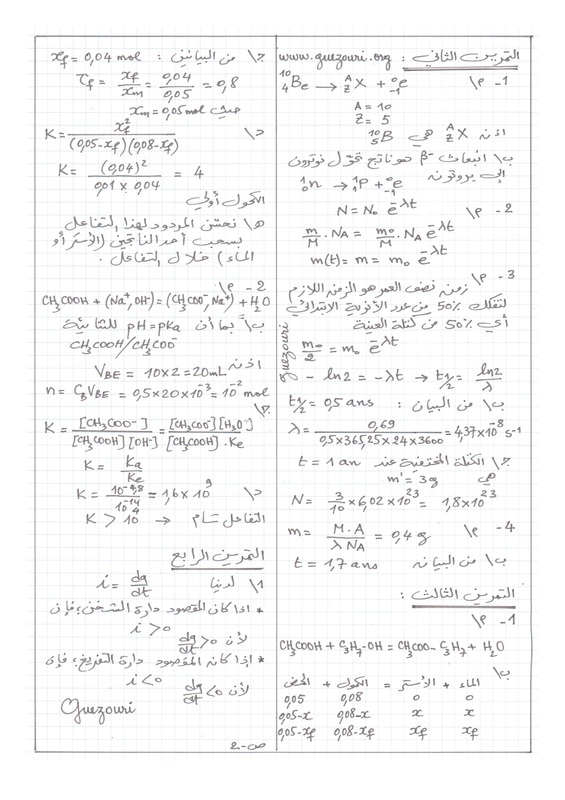 التمرين الثاني : www.guezouri.org
1- أ\ ¹⁰₄Be → ᴬ_ZX + ⁰₋₁e
A = 10
Z = 5
اذن ᴬ_ZX هي ¹⁰₅B
ب\ انبعاث β⁻ هو ناتج تحول نوترون
إلى بروتون
¹₀n → ¹₁P + ⁰₋₁e
2- أ\ N = N₀ e^-λt
m/M . NA = m₀/M . NA e^-λt
m(t) = m = m₀ e^-λt
3- أ\ زمن نصف العمر هو الزمن اللازم
لتفكك 50% من عدد الأنوية الابتدائي
أي 50% من كتلة العينة
m₀/2 = m₀ e^-λt
- ln2 = -λt → t½ = ln2/λ
ب\ من البيان : t½ = 0,5 ans
λ = 0,69 / 0,5x365,25x24x3600 = 4,37x10⁻⁸ s⁻¹
ج\ الكتلة المختفية عند t = 1 an
هي m' = 3g
N = 3/10 x 6,02x10²³ = 1,8x10²³
4- أ\ m = M.A / λ NA = 0,4 g
ب\ من البيان t = 1,7 ans
التمرين الثالث :
1- أ\
CH₃COOH + C₃H₇-OH = CH₃COO-C₃H₇ + H₂O
ب\ الحمض + الكحول = الأستر + الماء
0,05 0,08 0 0
0,05-x 0,08-x x x
0,05-xf 0,08-xf xf xf
guezouri
ج\ من البيانين : xf = 0,04 mol
τf = xf/xm = 0,04/0,05 = 0,8
حيث xm = 0,05 mol
د\ K = xf² / (0,05-xf)(0,08-xf)
K = (0,04)² / 0,01 x 0,04 = 4
الكحول أولي
ه\ نحسّن المردود لهذا التفاعل
بسحب أحد الناتجين (الأستر أو
الماء) خلال التفاعل .
2- أ\
CH₃COOH + (Na⁺,OH⁻) = (CH₃COO⁻,Na⁺) + H₂O
ب\ بما أن pH = pKa للثنائية
CH₃COOH/CH₃COO⁻
اذن VBE = 10x2 = 20mL
n = CB VBE = 0,5x20x10⁻³ = 10⁻² mol
ج\
K = [CH₃COO⁻] / [CH₃COOH][OH⁻] = [CH₃COO⁻][H₃O⁺] / [CH₃COOH].Ke
K = Ka/Ke
د\ K = 10^-4,8 / 10⁻¹⁴ = 1,6x10⁹
K > 10⁴ → التفاعل تام
التمرين الرابع
1\ لدينا i = dq/dt
* اذا كان المقصود دارة الشحن ؛ فإن
i > 0
لأن dq/dt > 0
* إذا كان المقصود دارة التفريغ ، فإن
i < 0
لأن dq/dt < 0
Guezouri
ص-2